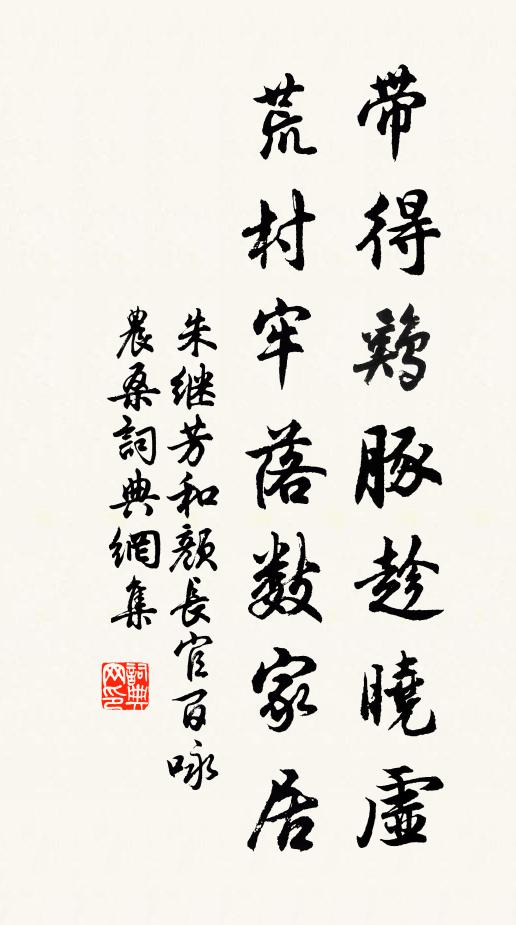 带得鷄豚趁曉虛
荒村牢落数家居
朱继芳和顏长官百咏
農桑詞典網集
詞典网印